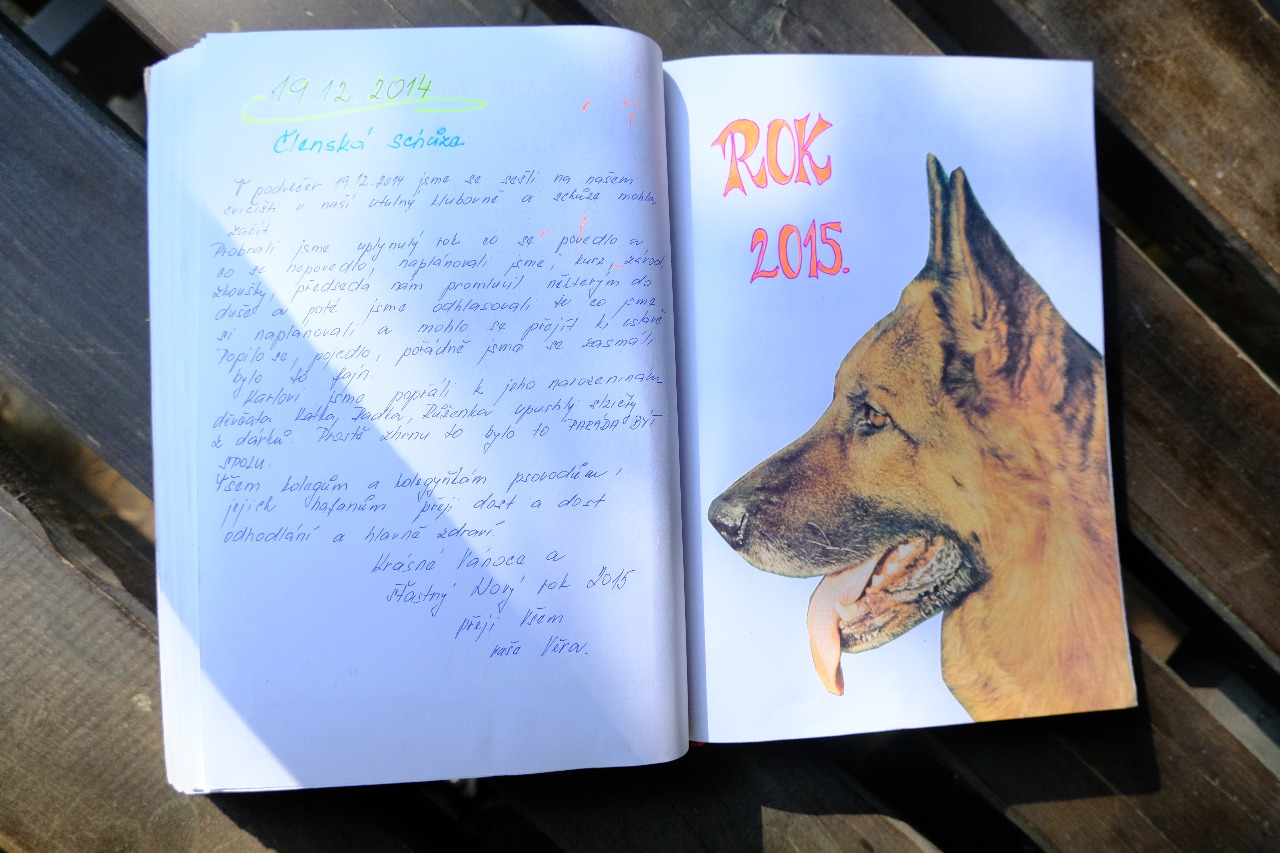 19 12 2014
Členská schůze
V podvečer 19.12.2014 jsme se sešli na našem
cvičišti v naší útulný klubovně a schůze mohla
začít
Probrali jsme uplynulý rok co se povedlo a
co se nepovedlo, naplánovali jsme, kurz, závod,
zkoušky, předseda nám promluvil některým do
duše a poté jsme odhlasovali to co jsme
si naplánovali a mohlo se přejít k oslavě
Popilo se, pojedlo, pořádně jsme se zasmáli
bylo to fajn.
Karlovi jsme popřáli k jeho narozeninám
děvčata Katka, Radka, Růženka upustily slzičky
z dárků. Prostě žhrnu to bylo to PARÁDA BÝT
SPOLU.
Všem kolegům a kolegyňkám psovodům i
jejich hafanům přeji dost a dost
odhodlání a hlavně zdraví.
Krásné Vánoce a
šťastný Nový rok 2015
přeji Všem
vaše Věra.
ROK
2015.